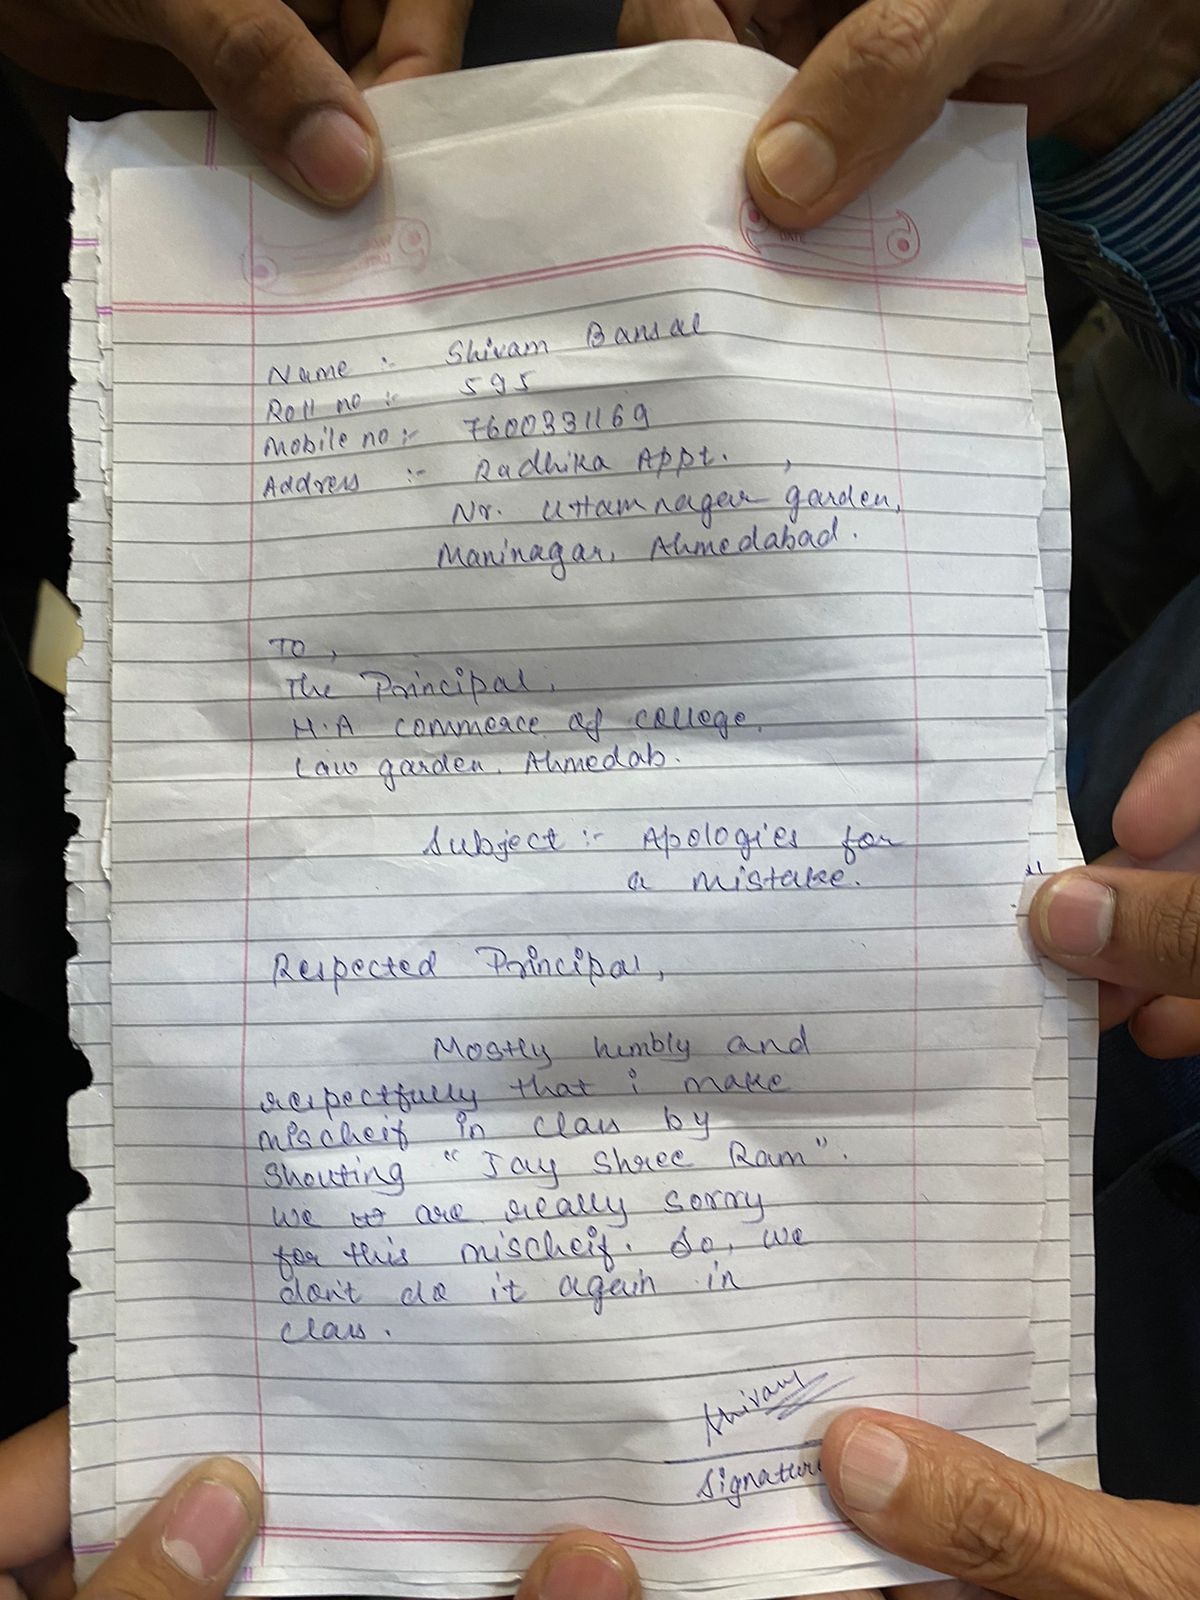 DATE
Name :- Shivam Bansal
Roll no :- 595
Mobile no :- 7600331169
Address :- Radhika Appt. ,
Nr. Uttamnagar garden,
Maninagar, Ahmedabad.
TO ,
The Principal,
H.A commerce of college,
Law garden, Ahmedab.
Subject :- Apologies for
a mistake.
Respected Principal,
Mostly humbly and
respectfully that i make
mischeif in class by
Shouting "Jay Shree Ram".
we are really sorry
for this mischeif. So, we
don't do it again in
class.
Shivam
Signature